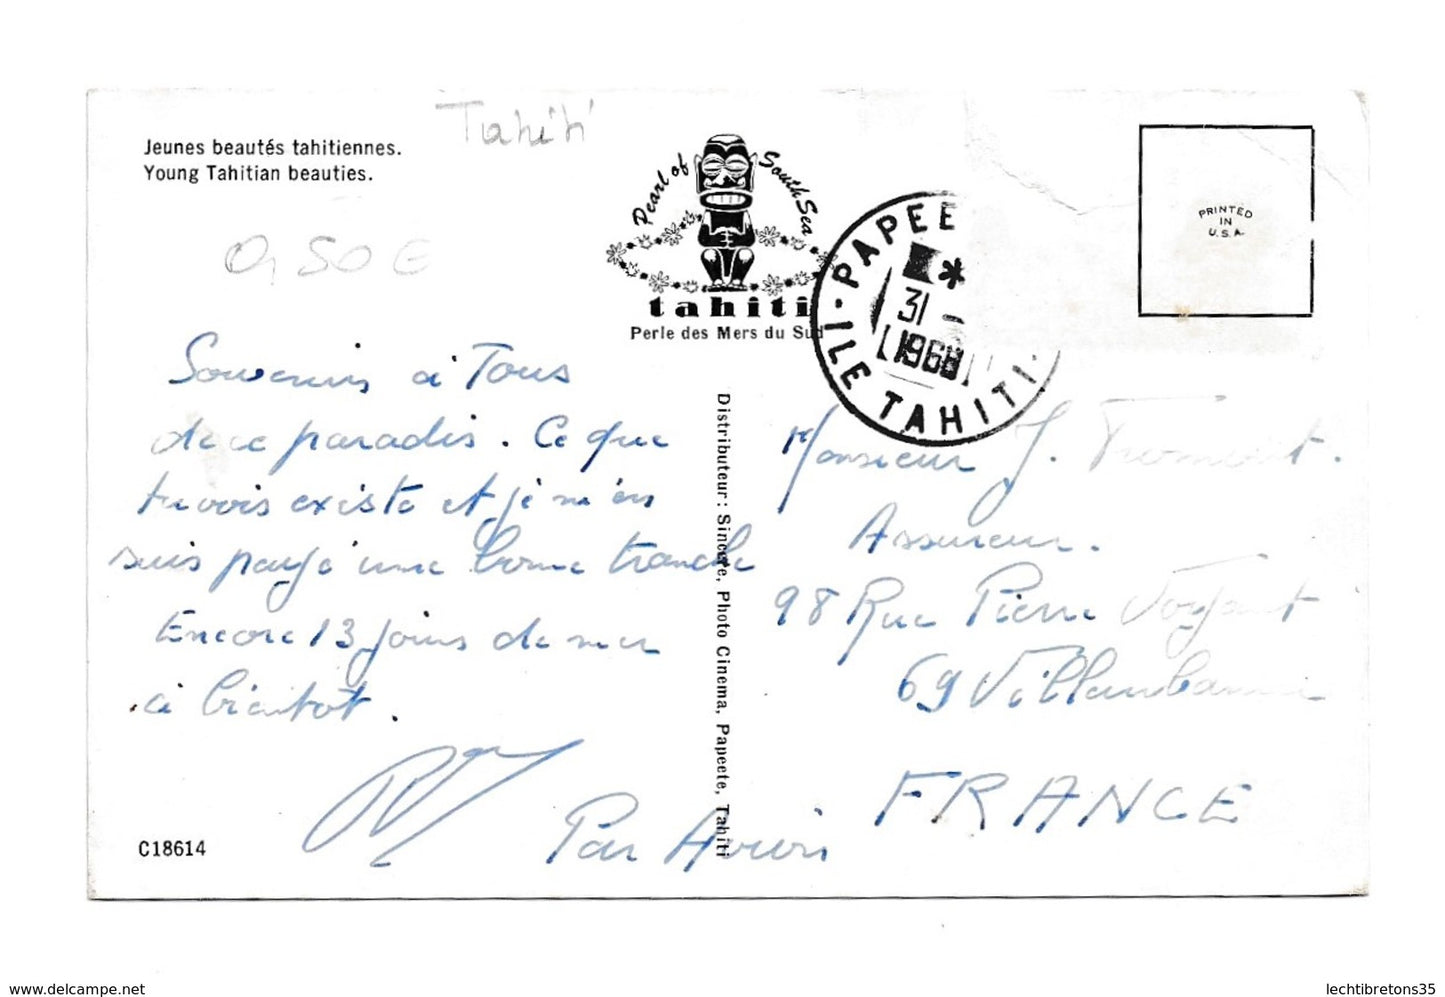 Tahiti
Jeunes beautés tahitiennes.
Young Tahitian beauties.
0,50 €
Pearl of South Sea
tahiti
Perle des Mers du Sud
PAPEE
*
31 -
1968
ILE TAHITI
PRINTED
IN
U.S.A.
Souvenirs à Tous
de ce paradis. Ce que
tu vois existe et je m'en
suis payé une bonne tranche
Encore 13 jours de mer
à bientot.
Par Avion
C18614
Distributeur : Sincère, Photo Cinema, Papeete, Tahiti
Monsieur J. Fromont.
Assureur.
98 Rue Pierre Voyant
69 Villeurbanne
FRANCE
delcampe.net
lechtibretons35